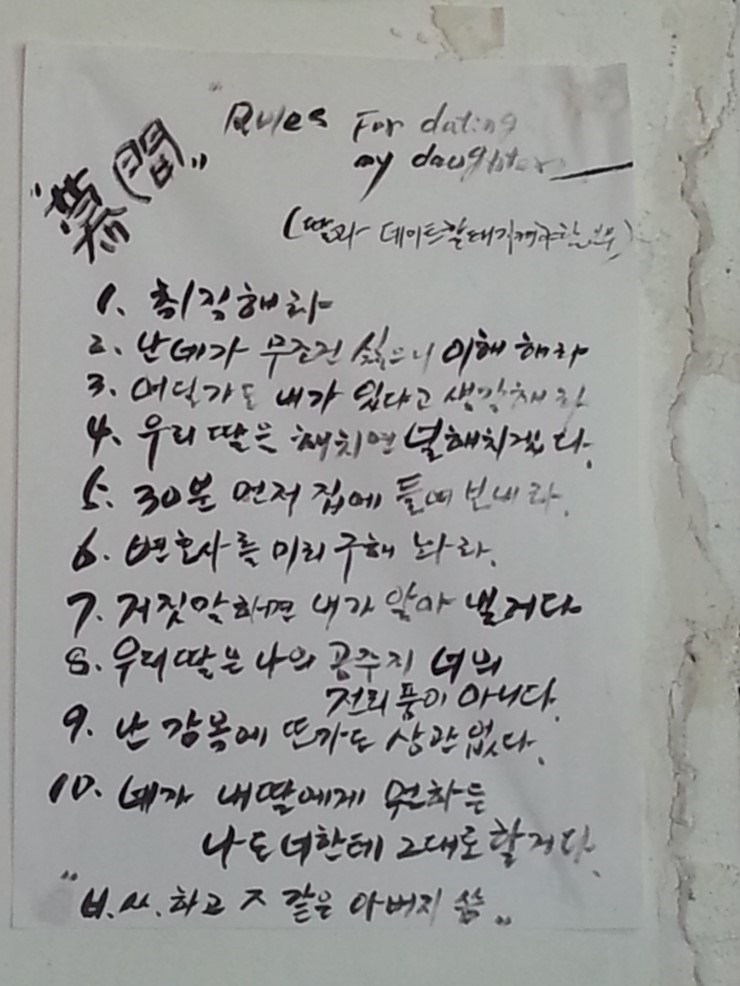 "Rules For dating
my daughter
(딸과 데이트할때 지켜야할
1. 취직해라
2. 난 네가 무조건 싫으니 이해 해라
3. 어딜가도 내가 있다고 생각해라
4. 우리 딸은 해치면 널해치겠다.
5. 30분 먼저 집에 들여 보내라.
6. 변호사를 미리 구해 놔라.
7. 거짓말하면 내가 알아 낼거다
8. 우리딸은 나의 공주지 너의
전리품이 아니다.
9. 난 감옥에 또가도 상관없다.
10. 네가 내딸에게 뭔하든
나도 너한테 그대로 할거다.
"ㅂ.ㅆ.하고 ㅈ 같은 아버지 씀"